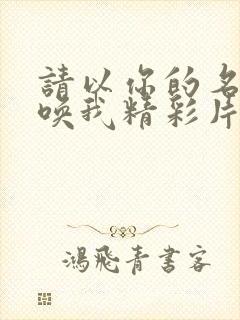 請以你的名
喚我精彩片
鴻飛青書客